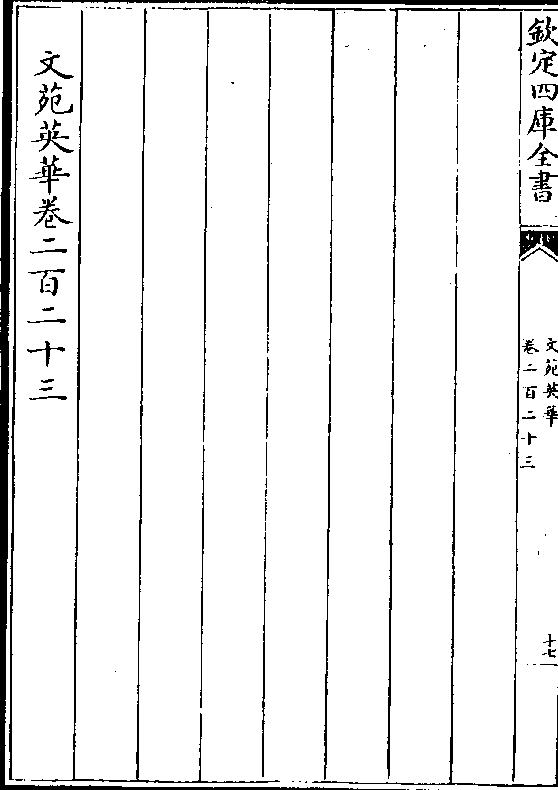 欽定四庫全書
文苑英華
卷二百二十三
十七
文苑英華卷二百二十三